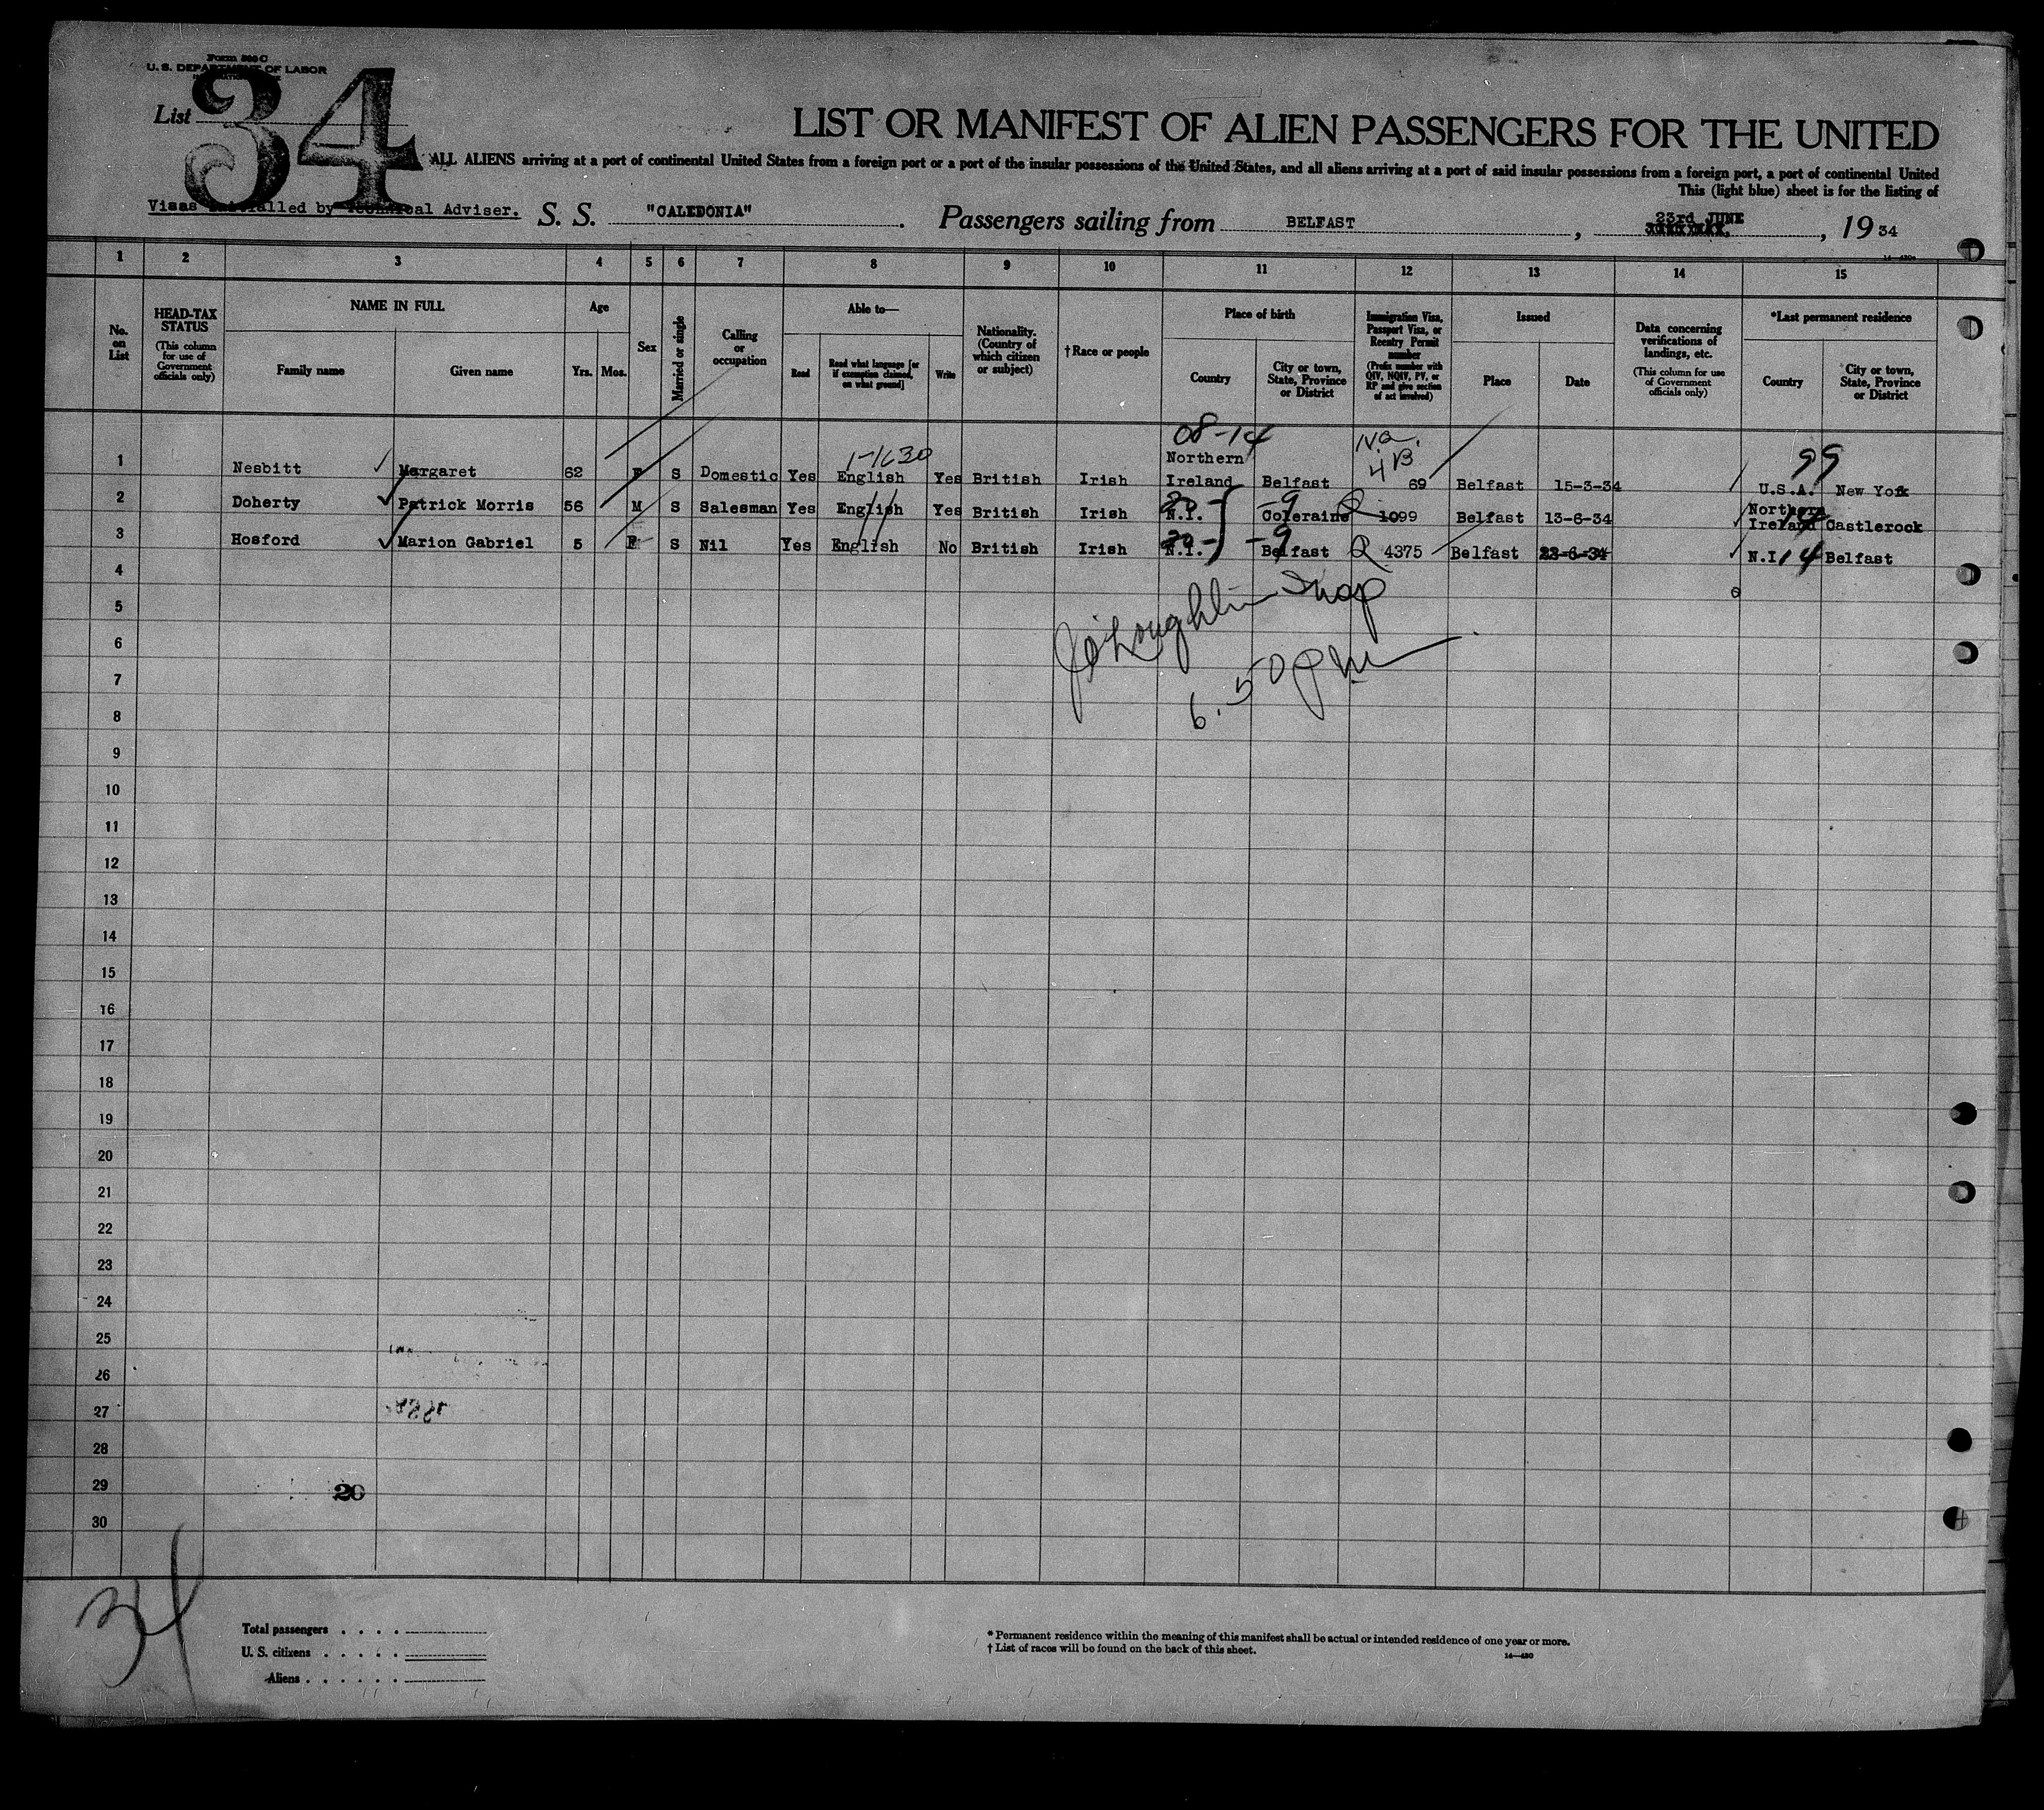 Form 500 C
U. S. DEPARTMENT OF LABOR
List
34
LIST OR MANIFEST OF ALIEN PASSENGERS FOR THE UNITED
ALL ALIENS arriving at a port of continental United States from a foreign port or a port of the insular possessions of the United States, and all aliens arriving at a port of said insular possessions from a foreign port, a port of continental United
This (light blue) sheet is for the listing of
Visas initialled by Technical Adviser. S. S. "CALEDONIA". Passengers sailing from BELFAST, 23rd JUNE, 19 34
14—430a
1 2 3 4 5 6 7 8 9 10 11 12 13 14 15
No. on List
HEAD-TAX STATUS (This column for use of Government officials only)
NAME IN FULL
Family name
Given name
Age
Yrs. Mos.
Sex
Married or single
Calling or occupation
Able to—
Read
Read what language [or if exemption claimed, on what ground]
Write
Nationality. (Country of which citizen or subject)
†Race or people
Place of birth
Country
City or town, State, Province or District
Immigration Visa, Passport Visa, or Reentry Permit number (Prefix number with QIV, NQIV, PV, or RP and give section of act involved)
Issued
Place
Date
Data concerning verifications of landings, etc. (This column for use of Government officials only)
*Last permanent residence
Country
City or town, State, Province or District
08-14
1-1630
4B
99
1 Nesbitt Margaret 62 F S Domestic Yes English Yes British Irish Northern Ireland Belfast 69 Belfast 15-3-34 U.S.A. New York
2 Doherty Patrick Morris 56 M S Salesman Yes English Yes British Irish N.I. -9 Coleraine Q 1099 Belfast 13-6-34 Northern Ireland Castlerock
3 Hosford Marion Gabriel 5 F S Nil Yes English No British Irish N.I. -9 Belfast Q 4375 Belfast 22-6-34 N.I. 14 Belfast
4
5
6
7
8
9
10
11
12
13
14
15
16
17
18
19
20
21
22
23
24
25
26
27
28
29
30
J O'Loughlin Insp
6.50 pm
20
34
Total passengers
U. S. citizens
Aliens
* Permanent residence within the meaning of this manifest shall be actual or intended residence of one year or more.
† List of races will be found on the back of this sheet.
14—430